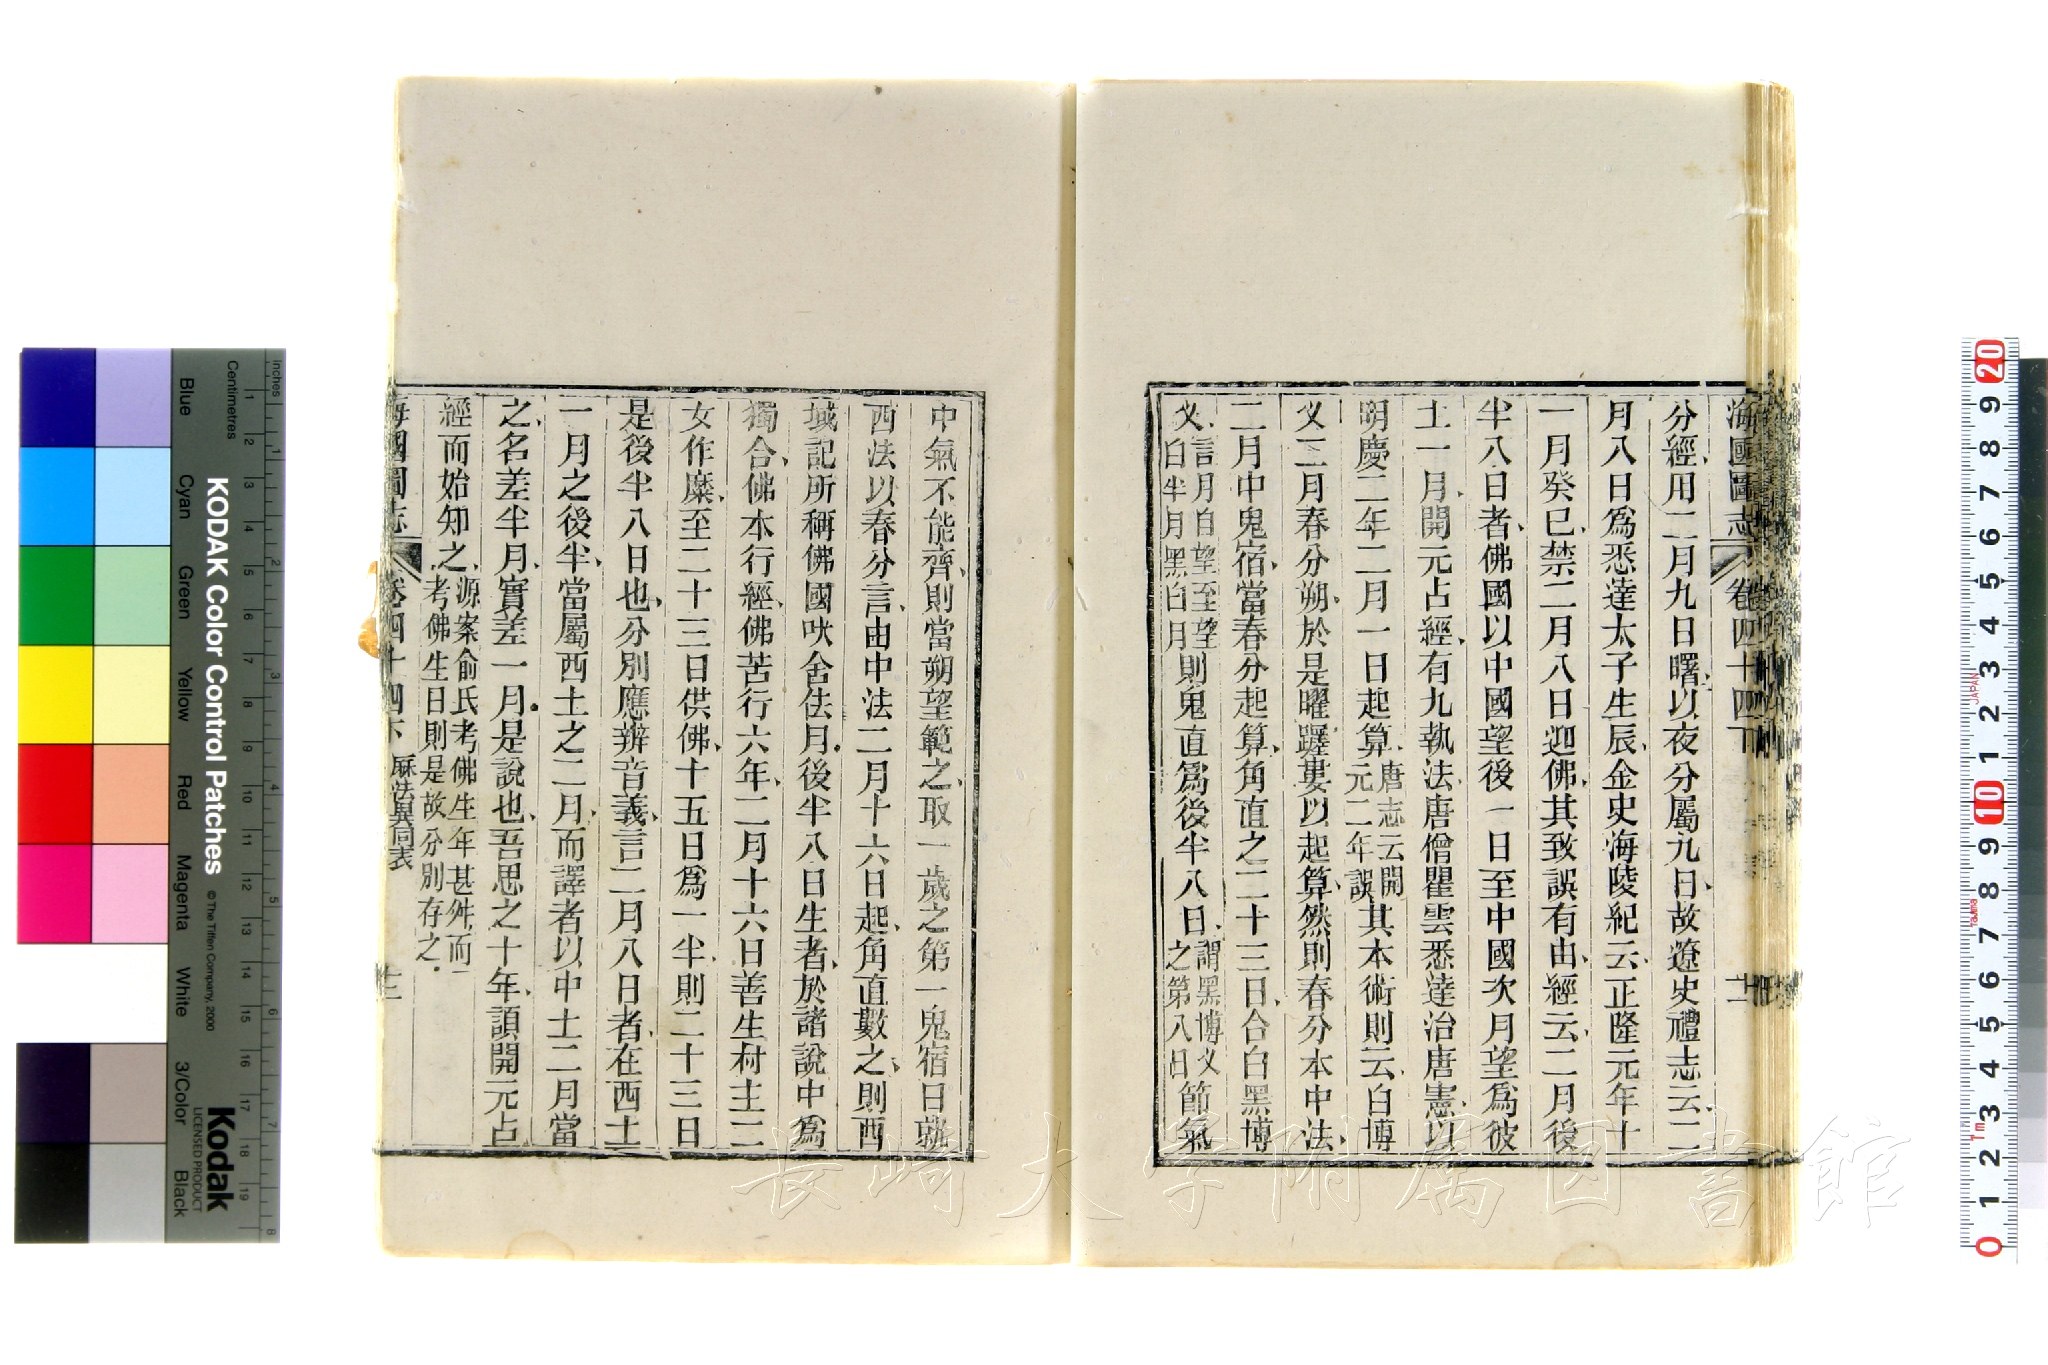 海國圖志 卷四十四下
分經用二月九日曙以夜分屬九日故遼史禮志云二
月八日爲悉達太子生辰金史海陵紀云正隆元年十
一月癸巳禁二月八日迎佛其致誤有由經云二月後
半八日者佛國以中國望後一日至中國次月望爲彼
土一月開元占經有九執法唐僧瞿雲悉達治唐憲以
明慶二年二月一日起算唐志云開元二年誤其本術則云白博
义二月春分朔於是曜躔婁以起算然則春分本中法
二月中鬼宿當春分起算角直之二十三日合白黑博
义言月白望至望白半月黑白月則鬼直爲後半八日謂黑博义之第八日節氣
中氣不能齊則當朔望範之取一歲之第一鬼宿日就
西法以春分言由中法二月十六日起角直數之則西
域記所稱佛國吠舍佉月後半八日生者於諸說中爲
獨合佛本行經佛苦行六年二月十六日善生村主二
女作糜至二十三日供佛十五日爲一半則二十三日
是後半八日也分別應辨音義言二月八日者在西土
一月之後半當屬西土之二月而譯者以中土二月當
之名差半月實差一月是說也吾思之十年讀開元占
經而始知之源案俞氏考佛生年甚舛而一考佛生日則是故分別存之
海國圖志 卷四十四下 厤法異同表 十二
KODAK Color Control Patches
© The Tiffen Company, 2000
Kodak
LICENSED PRODUCT
Inches
Centimetres
Blue
Cyan
Green
Yellow
Red
Magenta
White
3/Color
Black
長崎大学附属図書館